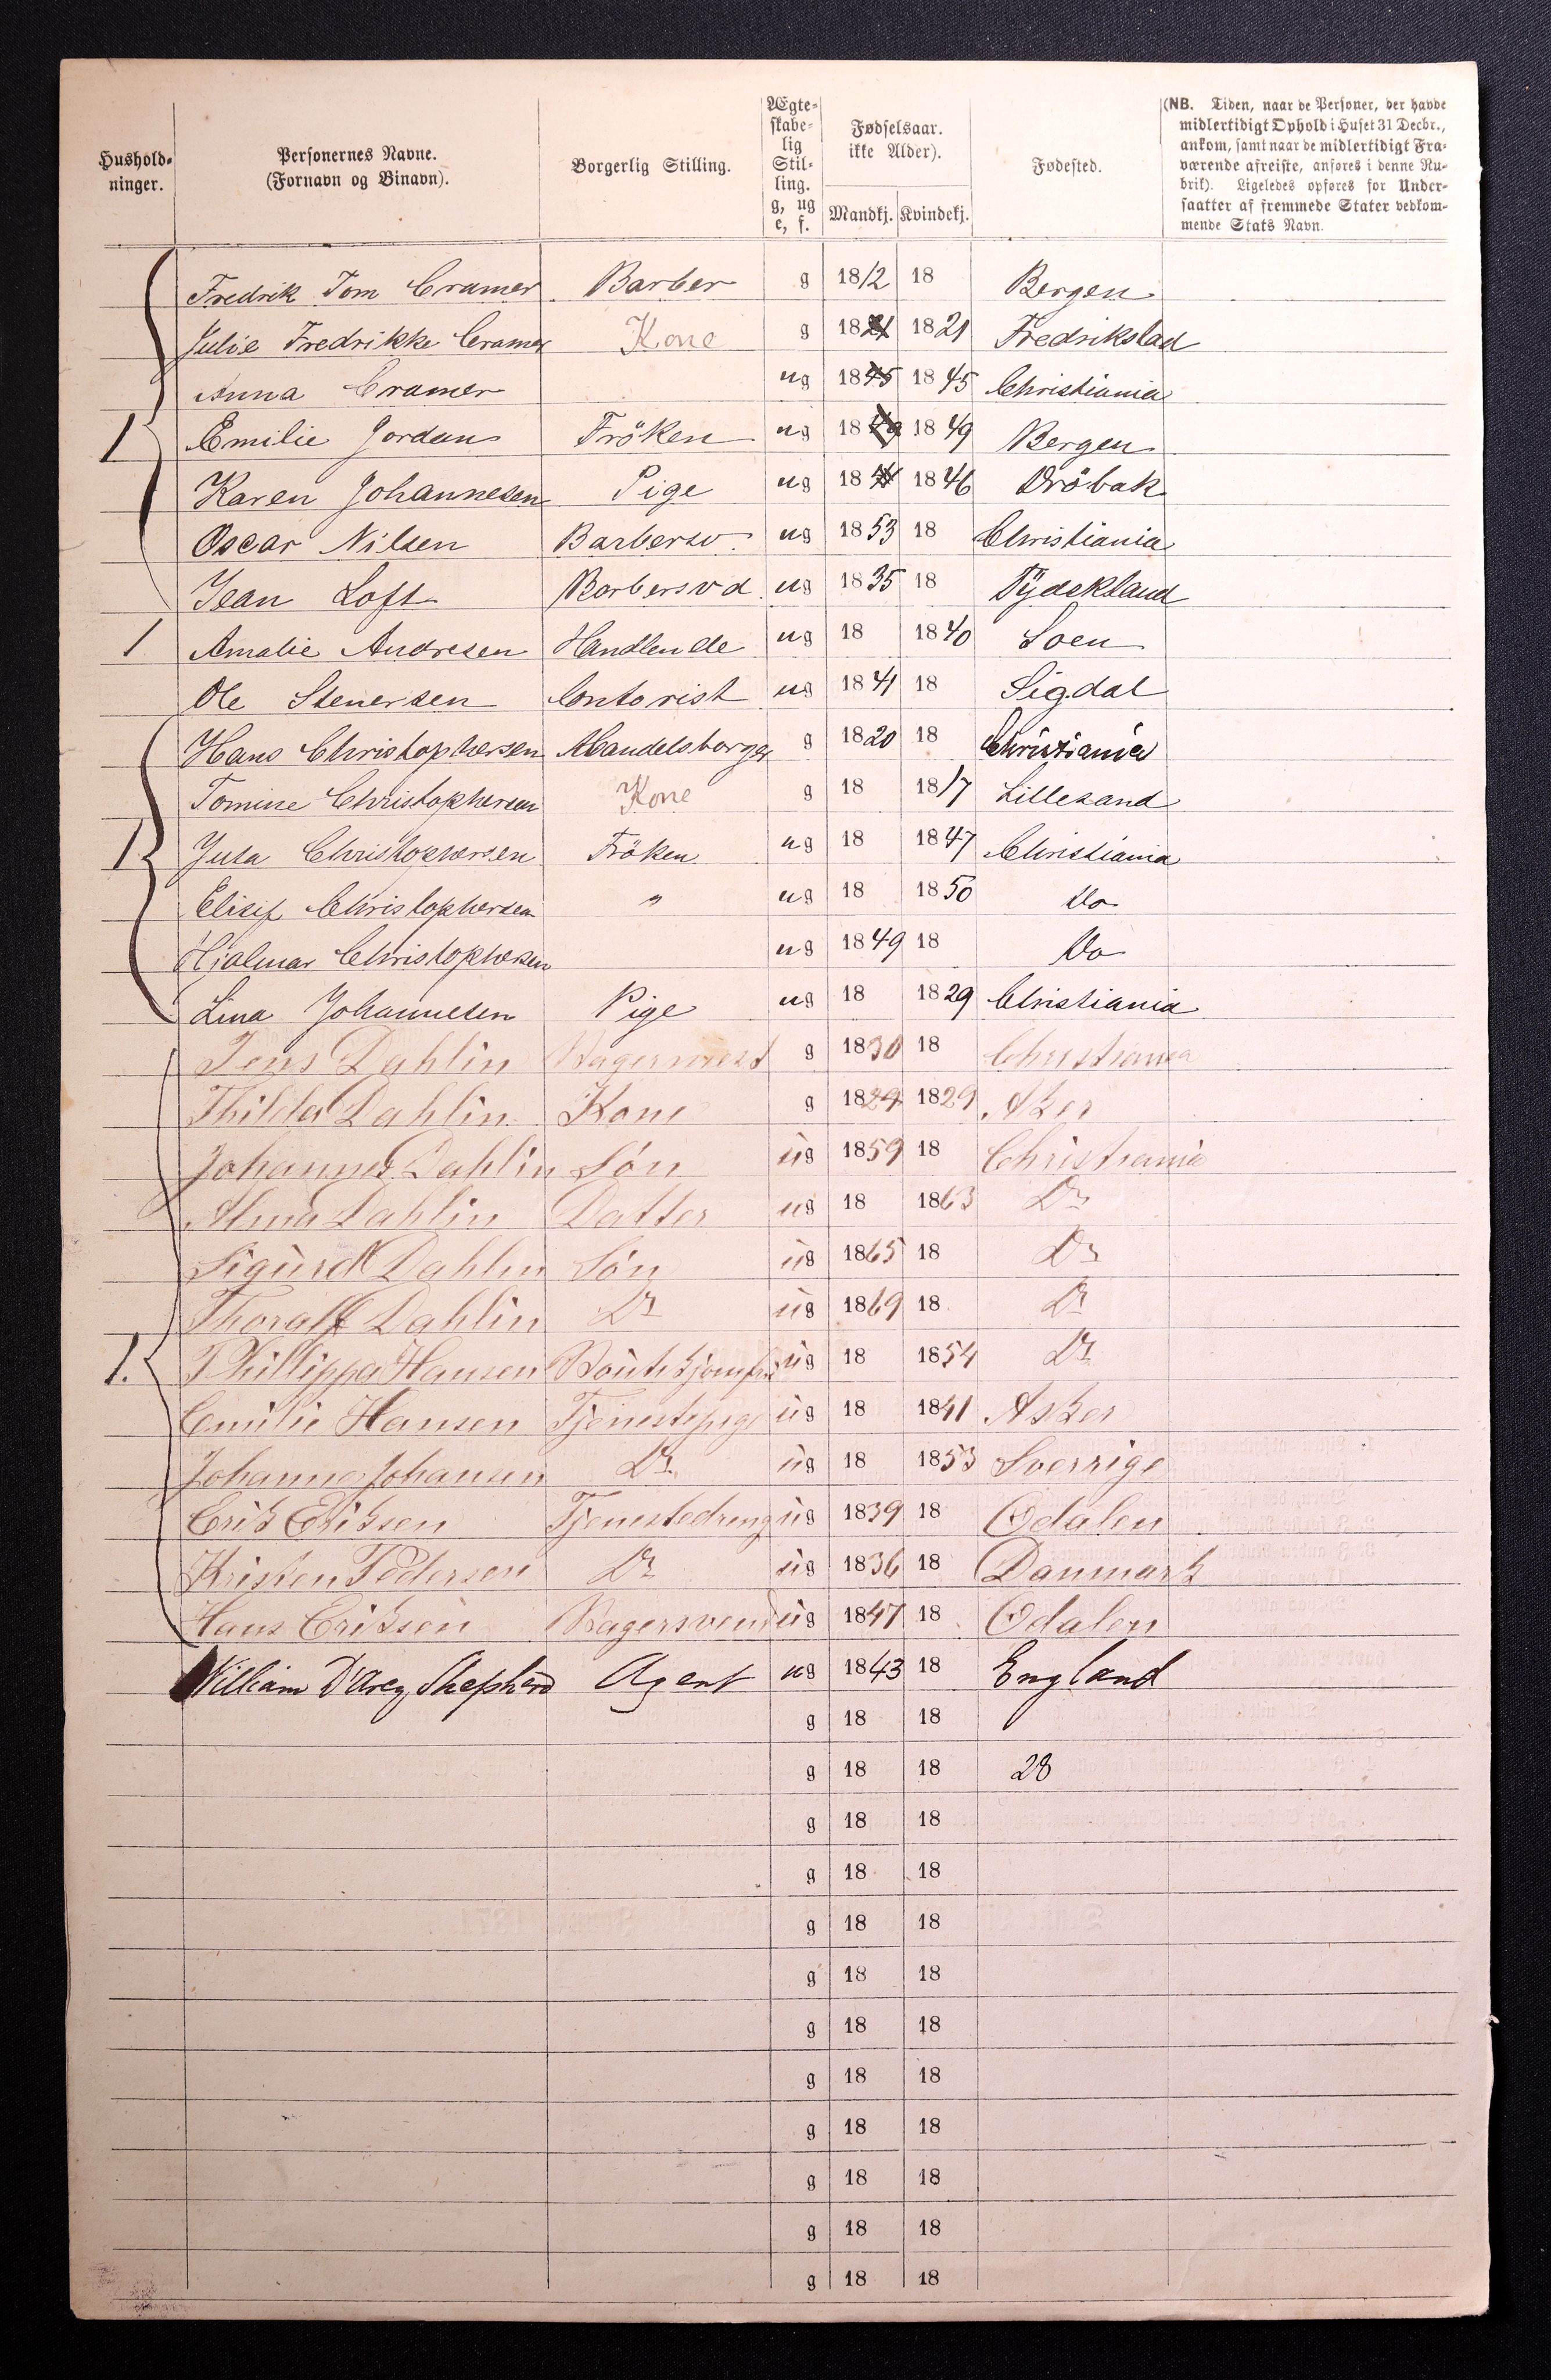 Hushold-
ninger.
Personernes Navne.
(Fornavn og Binavn).
Borgerlig Stilling.
Ægte-
skabe-
lig
Stil-
ling.
g, ug
e, f.
Fødselsaar.
ikke Alder).
Mandkj. Kvindekj.
Fødested.
(NB. Tiden, naar de Personer, der havde
midlertidigt Ophold i Huset 31 Decbr.,
ankom, samt naar de midlertidigt Fra-
værende afreiste, anføres i denne Ru-
brik). Ligeledes opføres for Under-
saatter af fremmede Stater vedkom-
mende Stats Navn.
Fredrik Tom Cramer Barber g 1812 18 Bergen
Julie Fredrikke Cramer Kone g 1821 1821 Fredrikstad
Anna Cramer ug 1845 1845 Christiania
1 Emilie Jordan Fröken ug 1849 1849 Bergen
Karen Johannesen Pige ug 18 1846 Dröbak
Oscar Nilsen Barbersv. ug 1853 18 Christiania
Jean Loft Barbersvd ug 1835 18 Tydskland
1 Amalie Andresen Handlende ug 18 1840 Soen
Ole Stenersen Contorist ug 1841 18 Sigdal
Hans Christophersen Handelsborger g 1820 18 Christiania
Tomine Christophersen Kone g 18 1817 Lillesand
1 Jula Christophersen Fröken ug 18 1847 Christiania
Elisif Christophersen " ug 18 1850 Do
Hjalmar Christophersen ug 1849 18 Do
Lina Johannesen Pige ug 18 1829 Christiania
Jens Dahlin Bagermest g 1830 18 Christiania
Thilda Dahlin Kone g 1829 1829 Aker
Johannes Dahlin Sön ug 1859 18 Christiania
Alma Dahlin Datter ug 18 1863 Do
Sigurd Dahlin Sön ug 1865 18 Do
Thoralf Dahlin Do ug 1869 18 Do
1. Phillippa Hansen Boutikjomfru ug 18 1854 Do
Emilie Hansen Tjenestepige ug 18 1841 Asker
Johanne Johansen Do. ug 18 1853 Sverrige
Erik Eriksen Tjenestedreng ug 1839 18 Odalen
Kristen Pedersen Do ug 1836 18 Danmark
Hans Eriksen Bagersvend ug 1847 18 Odalen
William D'Arcy Shepherd Agent ug 1843 18 England
g 18 18
g 18 18 28
g 18 18
g 18 18
g 18 18
g 18 18
g 18 18
g 18 18
g 18 18
g 18 18
g 18 18
g 18 18